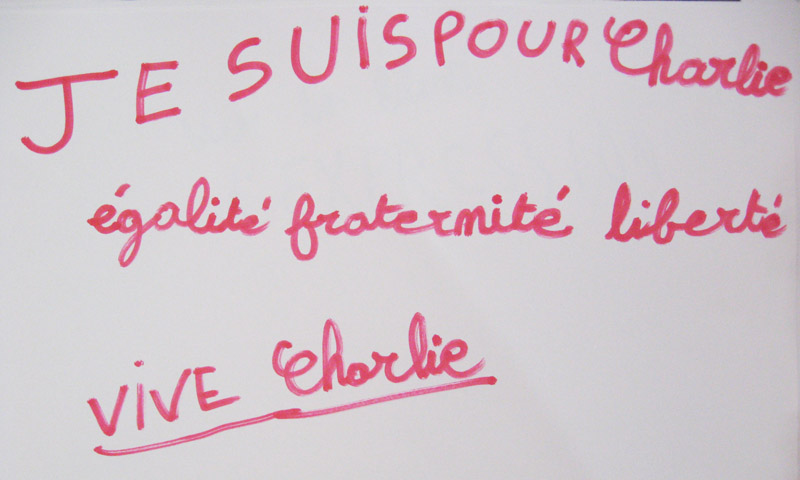 JE SUIS POUR Charlie
égalité fraternité liberté
ViVE Charlie